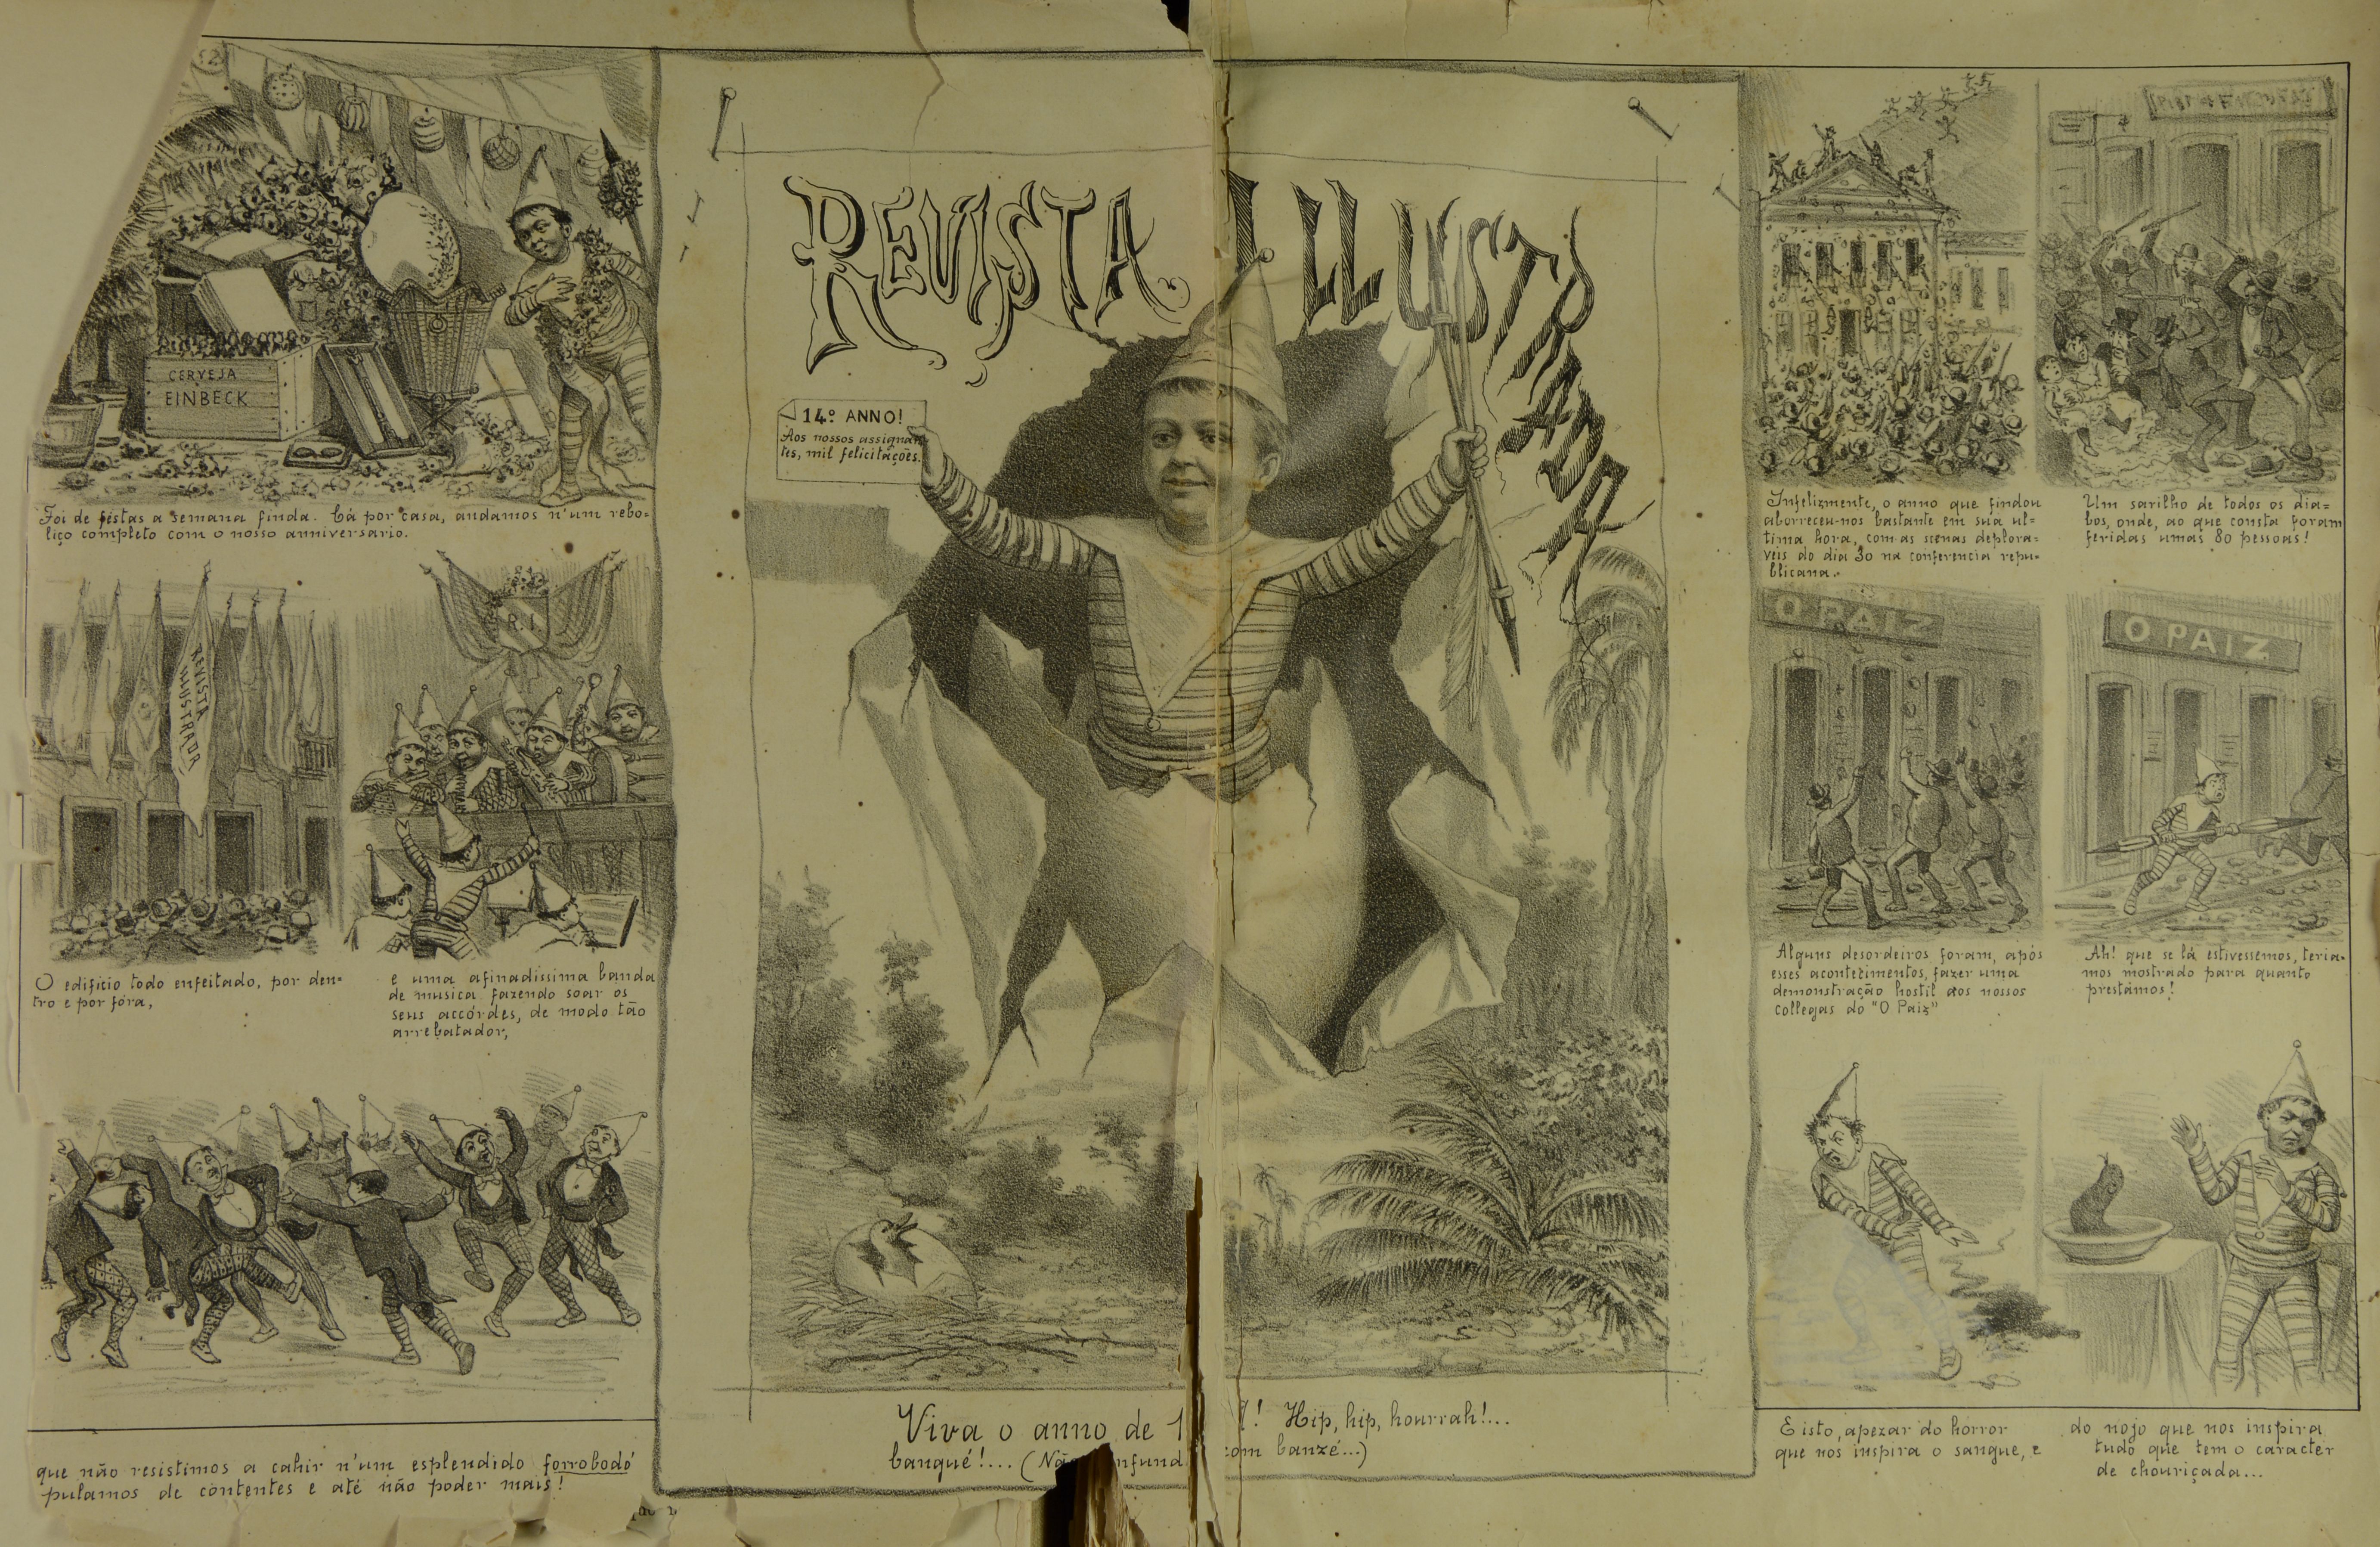 CERVEJA
EINBECK
Foi de festas a semana finda. Cá por casa, andamos n'um rebo-
liço completo com o nosso anniversario.
REVISTA
ILLUSTRADA
R. I.
O edificio todo enfeitado, por den-
tro e por fóra,
e uma afinadissima banda
de musica fazendo soar os
seus accórdes, de modo tão
arrebatador,
que não resistimos a cahir n'um esplendido forrobodó
pulamos de contentes e até não poder mais!
REVISTA ILLUSTRADA
14.º ANNO!
Aos nossos assignan
tes, mil felicitações.
Viva o anno de 1 ! Hip, hip, hourrah!...
bangué!... (Nã nfund com banzé...)
Infelizmente, o anno que findou
aborreceu-nos bastante em sua ul-
tima hora, com as scenas deplora-
veis do dia 30 na conferencia repu-
blicana.
Um sarilho de todos os dia-
bos, onde, ao que consta foram
feridas umas 80 pessoas!
O PAIZ
Alguns desordeiros foram, após
esses acontecimentos, fazer uma
demonstração hostil aos nossos
collegas do "O Paiz"
O PAIZ
Ah! que se lá estivessemos, teria-
mos mostrado para quanto
prestâmos!
E isto, apezar do horror
que nos inspira o sangue, e
do nojo que nos inspira
tudo que tem o caracter
de chouriçada...